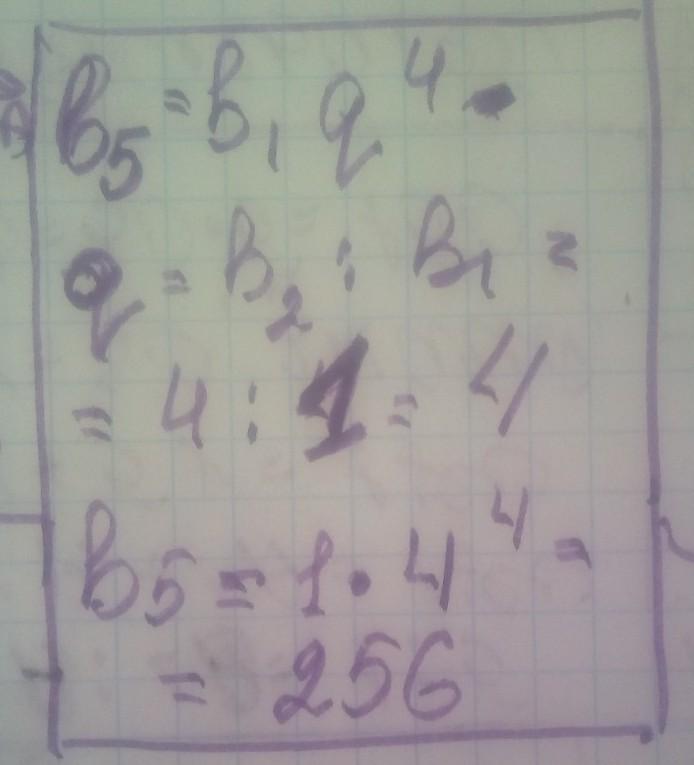 b₅ = b₁ q⁴
q = b₂ : b₁ =
= 4 : 1 = 4
b₅ = 1 · 4⁴ =
= 256